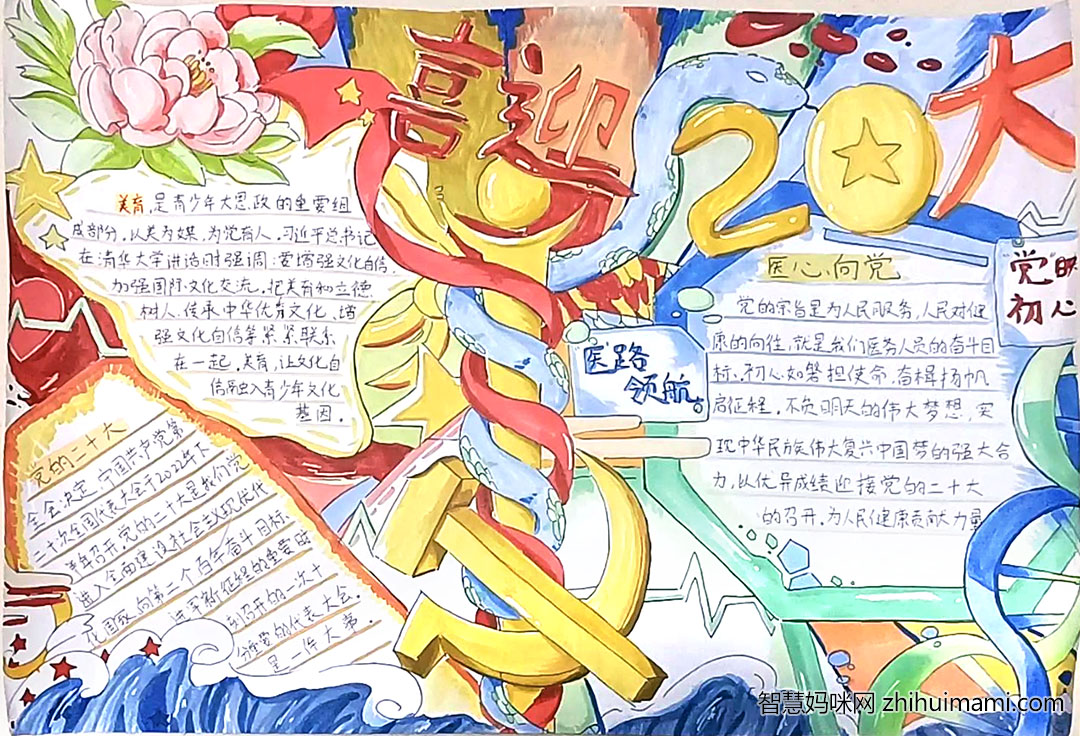 喜迎20大
美育,是青少年大思政的重要组
成部分,以美为媒,为党育人,习近平总书记
在清华大学讲话时强调:要增强文化自信,
加强国际文化交流,把美育和立德
树人、传承中华优秀文化、增
强文化自信等紧紧联系
在一起,美育,让文化自
信融入青少年文化
基因。
党的二十大
全会决定,中国共产党第
二十次全国代表大会于2022年下
半年召开,党的二十大是我们党
进入全面建设社会主义现代化
国家,向第二个百年奋斗目标
进军新征程的重要时
刻召开的一次十
分重要的代表大会,
是一件大事。
医路
领航。
医心向党
党的宗旨是为人民服务,人民对健
康的向往,就是我们医务人员的奋斗目
标、初心如磐担使命,奋楫扬帆
启征程,不负明天的伟大梦想,实
现中华民族伟大复兴中国梦的强大合
力,以优异成绩迎接党的二十大
的召开,为人民健康贡献力量
"党"的
初心
智慧妈咪网 zhihuimami.com